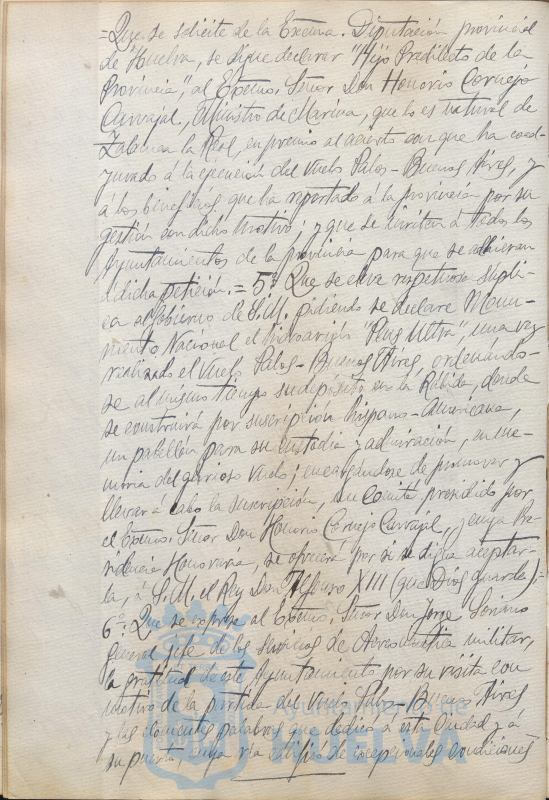 =Que se solicite de la Excma. Diputación provincial
de Huelva, se digne declarar "Hijo Predilecto de la
Provincia", al Excmo. Señor Don Honorio Cornejo
Carvajal, Ministro de Marina, que lo es natural de
Zalamea la Real, en premio al acierto con que ha coad-
yuvado á la ejecución del vuelo Palos-Buenos Aires, y
á los beneficios que ha reportado á la provincia por su
gestión con dicho motivo; y que se inviten á todos los
Ayuntamientos de la provincia para que se adhieran
á dicha petición.= 5º Que se eleve respetuosa súpli-
ca al Gobierno de S.M. pidiendo se declare Monu-
mento Nacional el hidroavión "Plus Ultra", una vez
realizado el vuelo Palos-Buenos Aires, ordenándo-
se al mismo tiempo su depósito en la Rábida, donde
se construirá por suscripción hispano-Americana,
un pabellón para su custodia y admiración, en me-
moria del glorioso vuelo; encargándose de promover y
llevar á cabo la suscripción, un Comité presidido por
el Excmo. Señor Don Honorio Cornejo Carvajal, y cuya Pre-
sidencia Honoraria, se ofrecerá por si se digna aceptar-
la, á S.M. el Rey Don Alfonso XIII (que Dios guarde).=
6º. Que se exprese al Excmo. Señor Don Jorge Soriano
General Jefe de los servicios de Aeronáutica militar,
la gratitud de este Ayuntamiento por su visita con
motivo de la partida del vuelo Palos-Buenos Aires
y las elocuentes palabras que dedicó á esta Ciudad y á
su puerto, cuya ría calificó de excepcionales condiciones
Ayuntamiento de
HUELVA